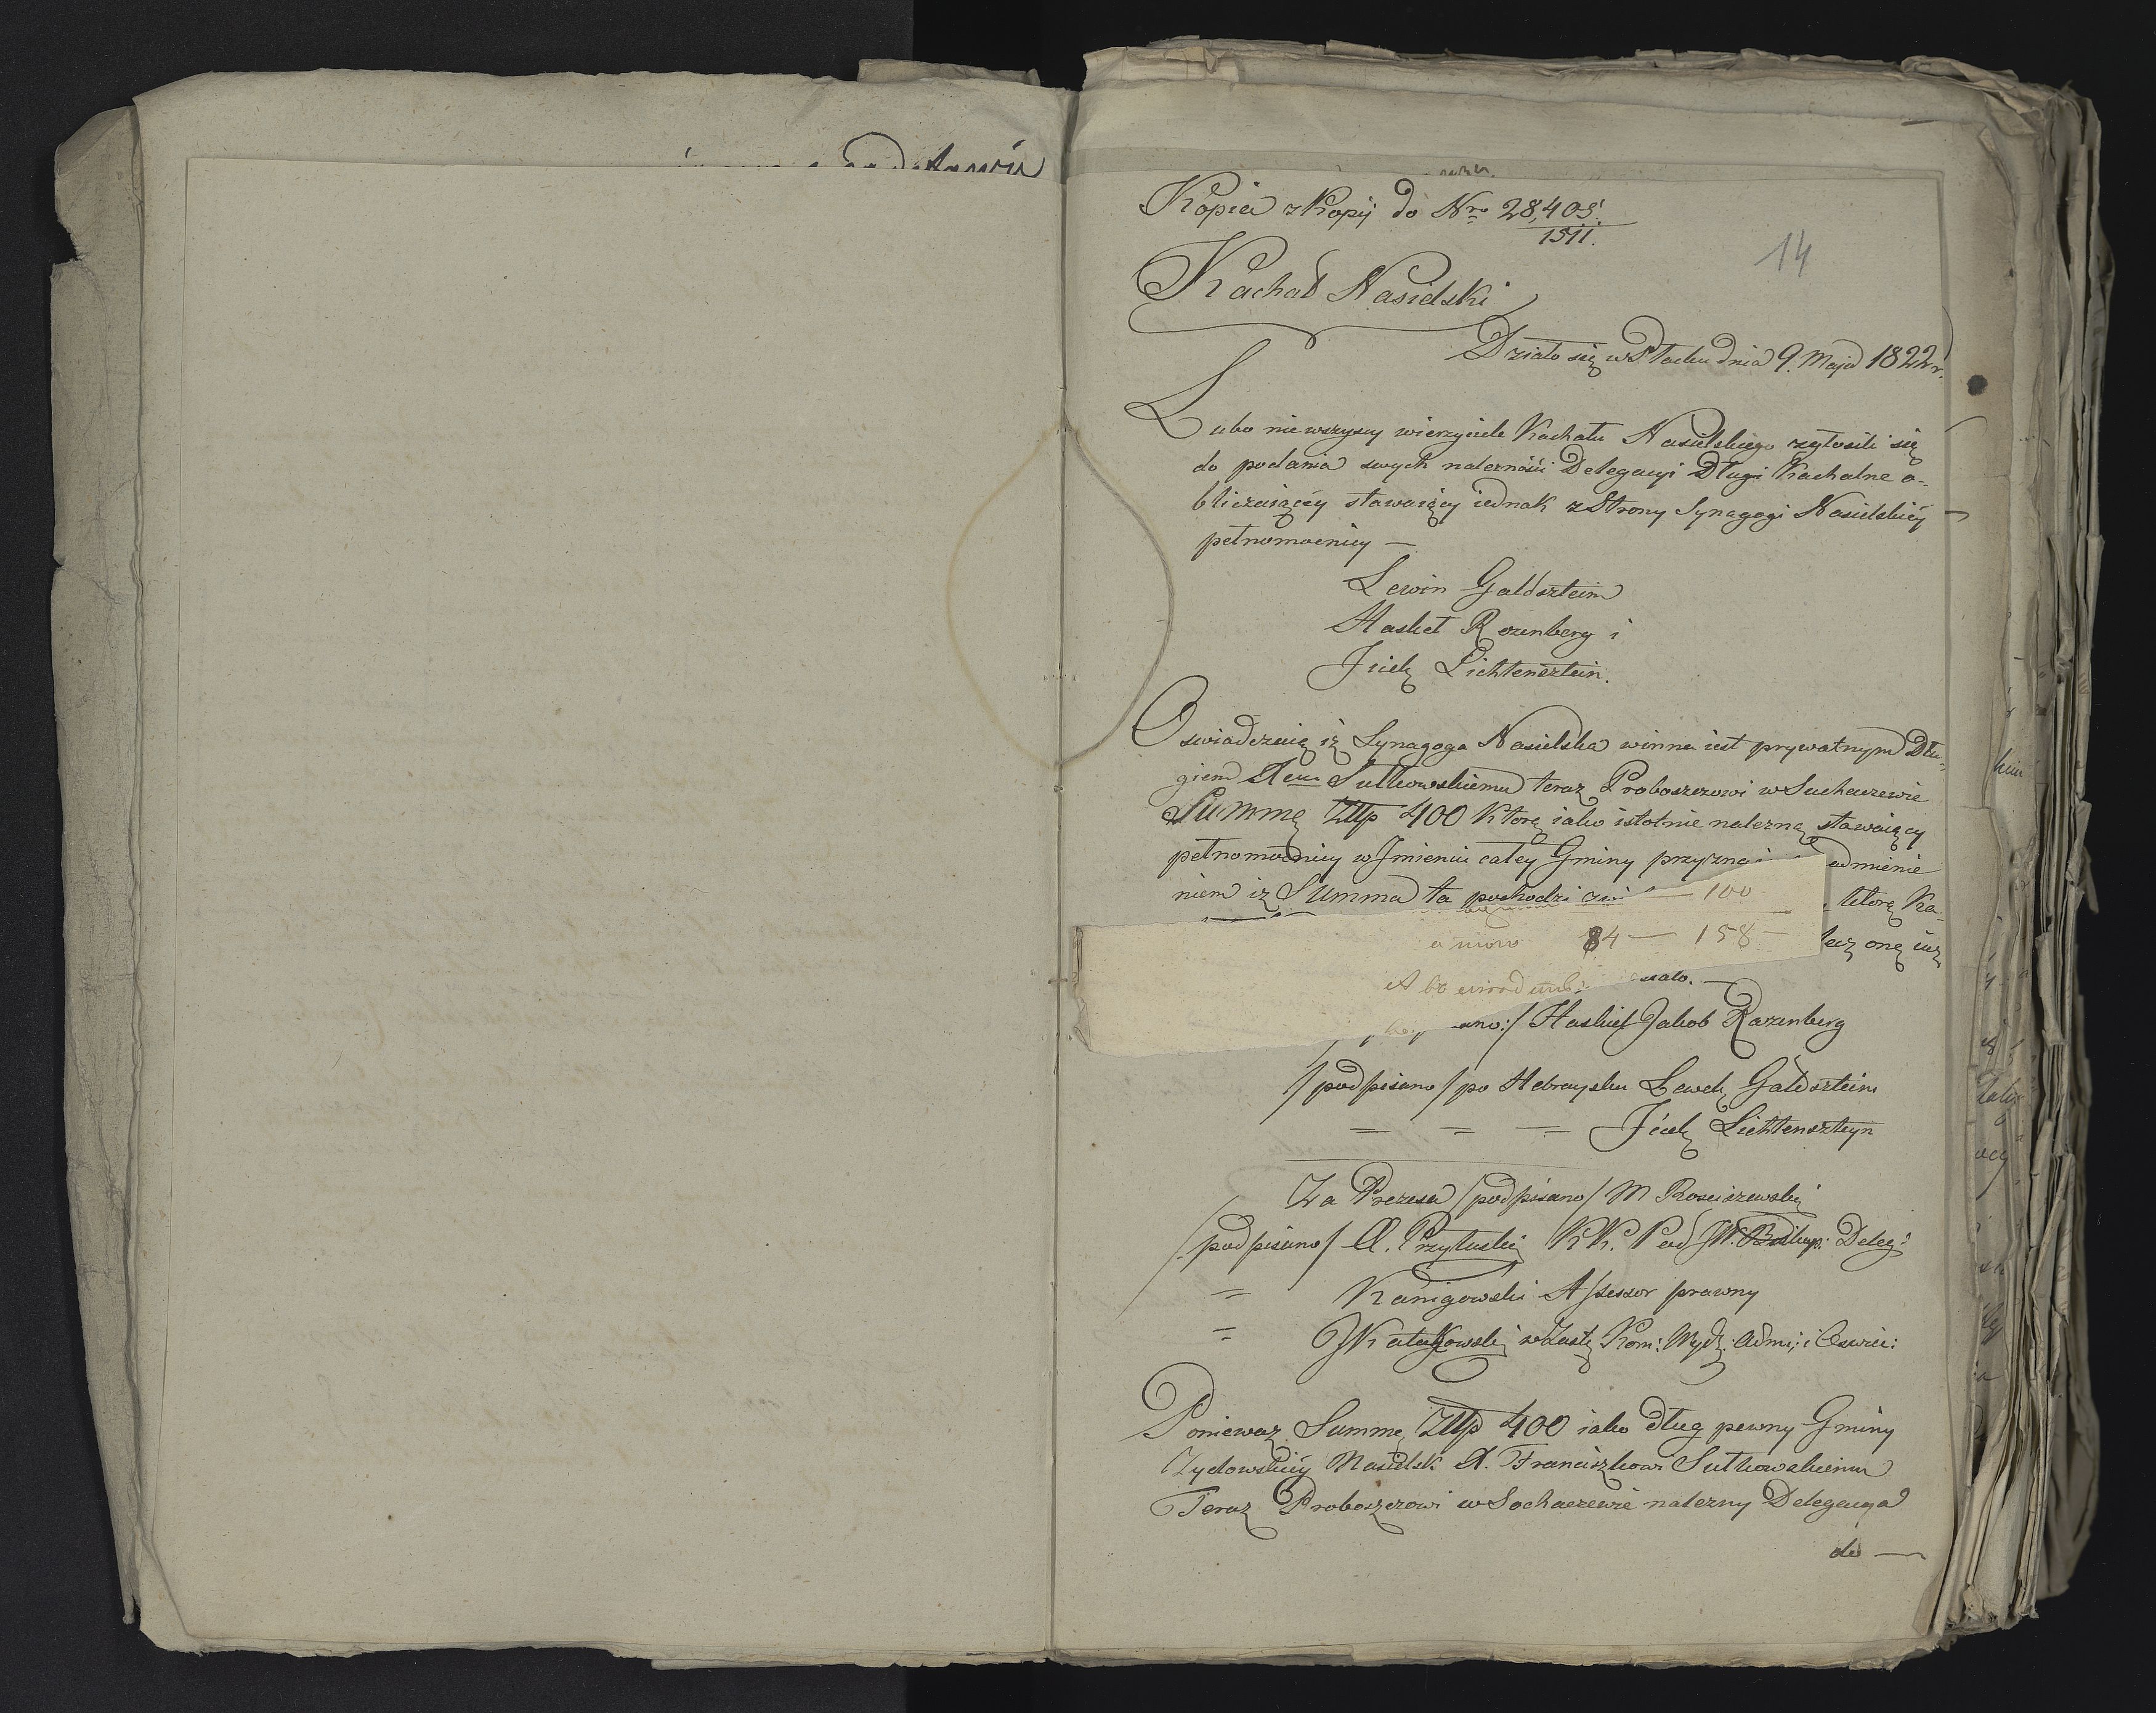 Kopia z Kopij do Nro 28,405.
1511.
14
Kachał Nasielski
Działo się w Płocku dnia 9. Maja 1822 r.
Lubo nie wszyscy wierzyciele Kachału Nasielskiego zgłosili się
do podania swych należności Delegacyi Długi Kachalne o-
bliczaiącey stawaiący iednak z Strony Synagogi Nasielskiey
pełnomocnicy —
Lewin Galdsztein
Haskel Rozenberg i
Jcick Lichtensztein.
Oswiadczaią iż Synagoga Nasielska winna iest prywatnym Dłu-
giem Xmu Sutkowskiemu teraz Proboszczowi w Sochaczewie
Summę Złłp 400 Którę iako istotnie należną stawaiący
pełnomocnicy w Jmieniu całey Gminy
niem iż Summa ta pochodzi
100
którę Ka-
84 — 158 —
lecz onę iuż
Haskiel Jakob Rozenberg
/podpisano/ po Hebraysku Lewek Galdsztein
= = = Jcick Lichtenszteyn
Za Prezesa /podpisano/ M Rosciszewski
/podpisano/ A. Przytuski KK. Deleg:
= Kanigowski Assessor prawny
= w Zastę Kom: Wydz: Admi: i Oswie:
Ponieważ Summę Złłp 400 iako dług pewny Gminy
Zydowskiey Nasielsk X. Franciszkowi Sutkowskiemu
Teraz Proboszczowi w Sochaczewie należny Delegacya
do —